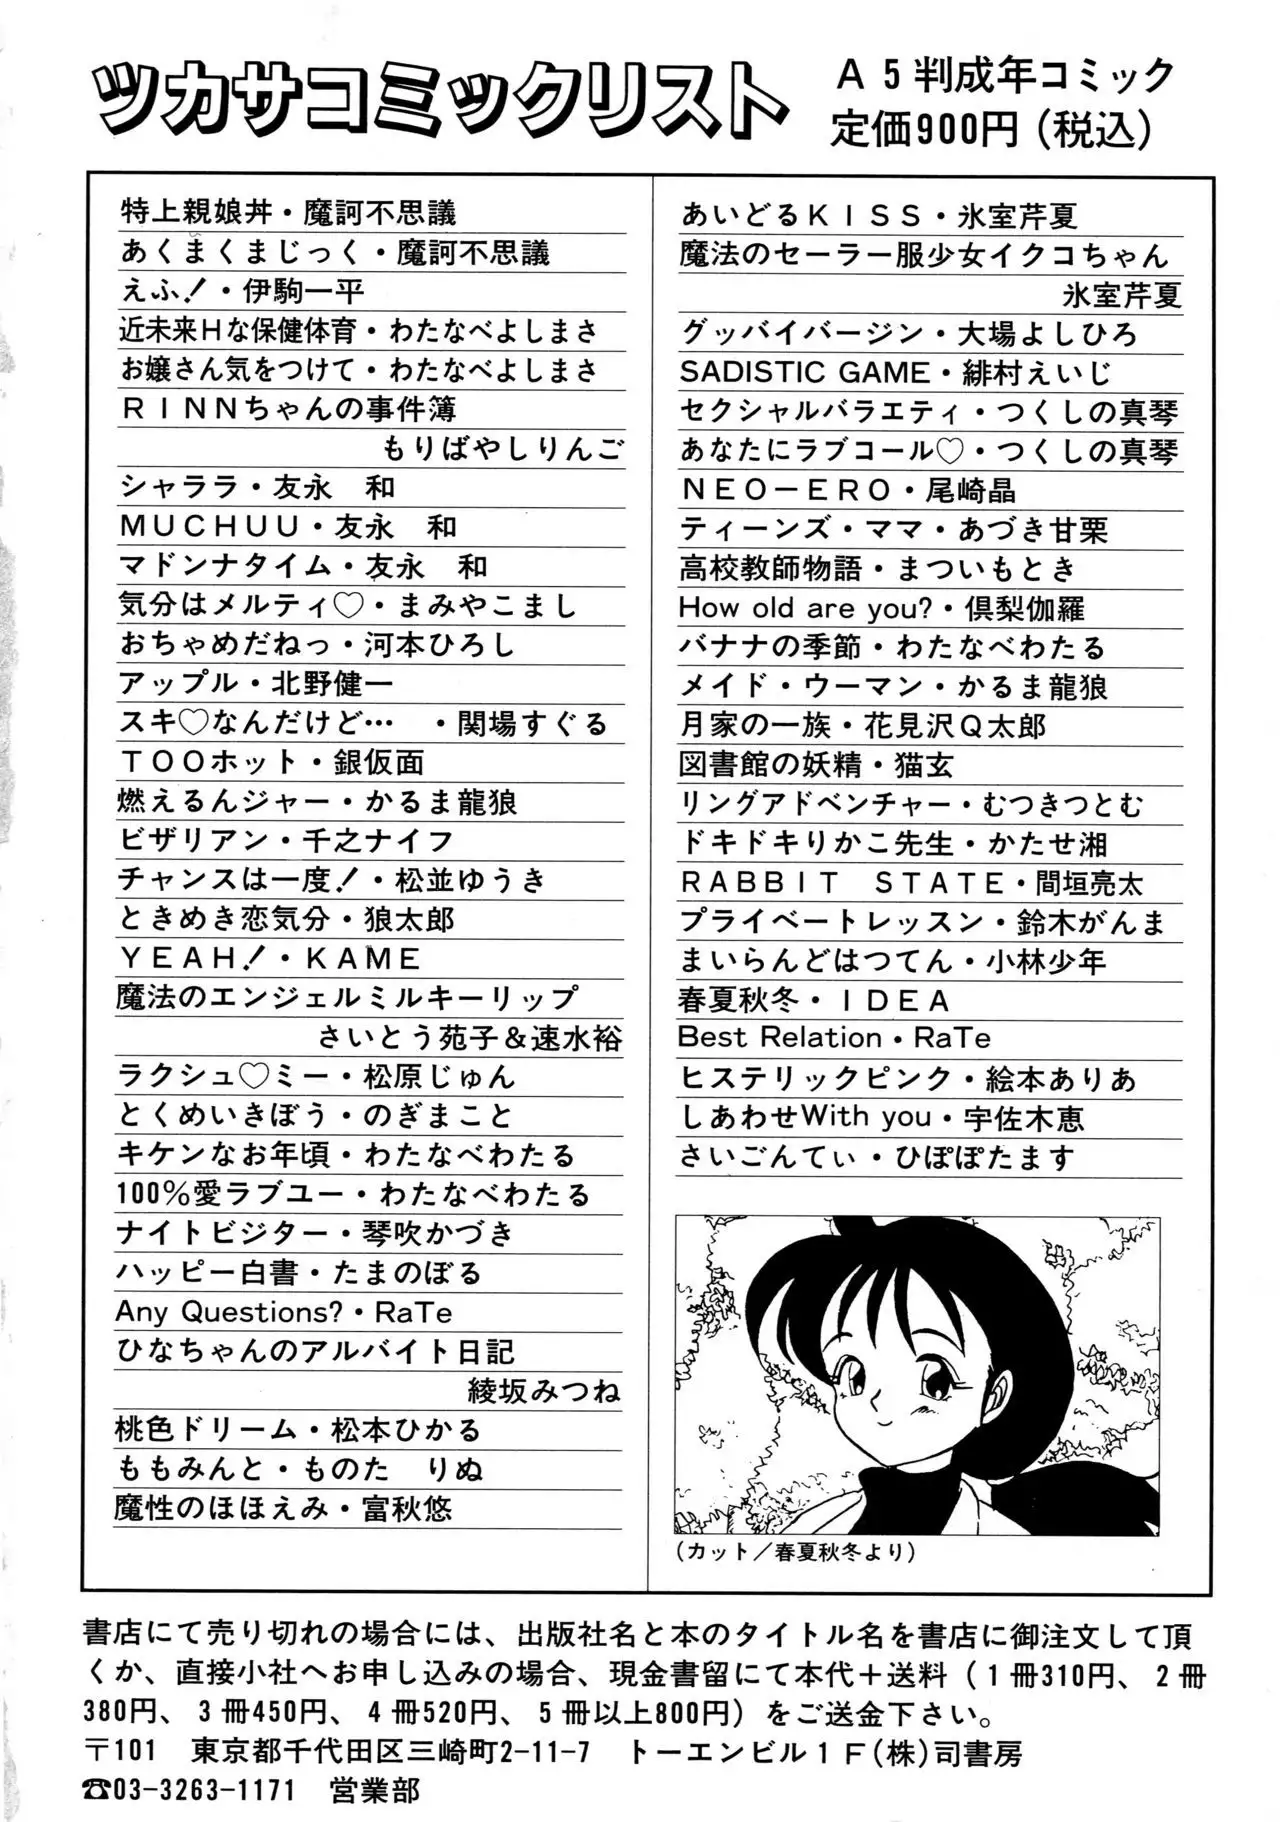 ツカサコミックリスト
A5判成年コミック
定価900円(税込)
特上親娘丼・魔訶不思議
あくまくまじっく・魔訶不思議
えふ!・伊駒一平
近未来Hな保健体育・わたなべよしまさ
お嬢さん気をつけて・わたなべよしまさ
RINNちゃんの事件簿
もりばやしりんご
シャララ・友永 和
MUCHUU・友永 和
マドンナタイム・友永 和
気分はメルティ♡・まみやこまし
おちゃめだねっ・河本ひろし
アップル・北野健一
スキ♡なんだけど… ・関場すぐる
TOOホット・銀仮面
燃えるんジャー・かるま龍狼
ビザリアン・千之ナイフ
チャンスは一度!・松並ゆうき
ときめき恋気分・狼太郎
YEAH!・KAME
魔法のエンジェルミルキーリップ
さいとう苑子&速水裕
ラクシュ♡ミー・松原じゅん
とくめいきぼう・のぎまこと
キケンなお年頃・わたなべわたる
100%愛ラブユー・わたなべわたる
ナイトビジター・琴吹かづき
ハッピー白書・たまのぼる
Any Questions?・RaTe
ひなちゃんのアルバイト日記
綾坂みつね
桃色ドリーム・松本ひかる
ももみんと・ものた りぬ
魔性のほほえみ・富秋悠
あいどるKISS・氷室芹夏
魔法のセーラー服少女イクコちゃん
氷室芹夏
グッバイバージン・大場よしひろ
SADISTIC GAME・緋村えいじ
セクシャルバラエティ・つくしの真琴
あなたにラブコール♡・つくしの真琴
NEO-ERO・尾崎晶
ティーンズ・ママ・あづき甘栗
高校教師物語・まついもとき
How old are you?・倶梨伽羅
バナナの季節・わたなべわたる
メイド・ウーマン・かるま龍狼
月家の一族・花見沢Q太郎
図書館の妖精・猫玄
リングアドベンチャー・むつきつとむ
ドキドキりかこ先生・かたせ湘
RABBIT STATE・間垣亮太
プライベートレッスン・鈴木がんま
まいらんどはつてん・小林少年
春夏秋冬・IDEA
Best Relation・RaTe
ヒステリックピンク・絵本ありあ
しあわせWith you・宇佐木恵
さいごんてぃ・ひぽぽたます
(カット/春夏秋冬より)
書店にて売り切れの場合には、出版社名と本のタイトル名を書店に御注文して頂
くか、直接小社へお申し込みの場合、現金書留にて本代+送料(1冊310円、2冊
380円、3冊450円、4冊520円、5冊以上800円)をご送金下さい。
〒101 東京都千代田区三崎町2-11-7 トーエンビル1F(株)司書房
☎03-3263-1171 営業部